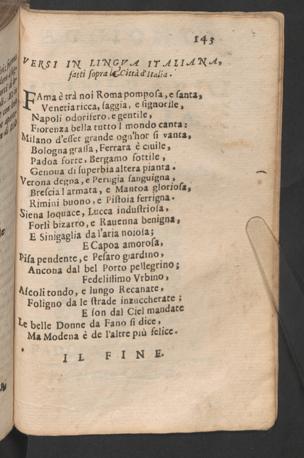 143
VERSI IN LINGVA ITALIANA,
fatti sopra le Città d'Italia.
FAma è trà noi Roma pomposa, e santa,
Venetia ricca, saggia, e signorile,
Napoli odorifero, e gentile,
Fiorenza bella tutto l mondo canta:
Milano d'esser grande ogn'hor si vanta,
Bologna grassa, Ferrara è ciuile,
Padoa forte, Bergamo sottile,
Genoua di superbia altera pianta.
Verona degna, e Perugia sanguigna,
Brescia l armata, e Mantoa gloriosa,
Rimini buono, e Pistoia ferrigna.
Siena loquace, Lucca industriosa,
Forlì bizarro, e Rauenna benigna,
E Sinigaglia da l'aria noiosa;
E Capoa amorosa,
Pisa pendente, e Pesaro giardino,
Ancona dal bel Porto pellegrino;
Fedelissimo Vrbino,
Ascoli tondo, e lungo Recanate,
Foligno da le strade inzuccherate;
E son dal Ciel mandate
Le belle Donne da Fano si dice,
Ma Modena è de l'altre più felice.
IL FINE.